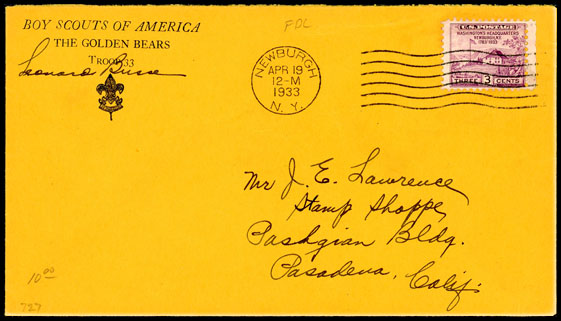 BOY SCOUTS OF AMERICA
THE GOLDEN BEARS
TROOP 33
Leonard
FDC
NEWBURGH
APR 19
12-M
1933
N.Y.
U.S. POSTAGE
WASHINGTON'S HEADQUARTERS
NEWBURGH, N.Y.
1783-1933
THREE 3 CENTS
Mr J. E. Lawrence
Stamp Shoppe
Pashgian Bldg.
Pasadena, Calif.
10.00
727